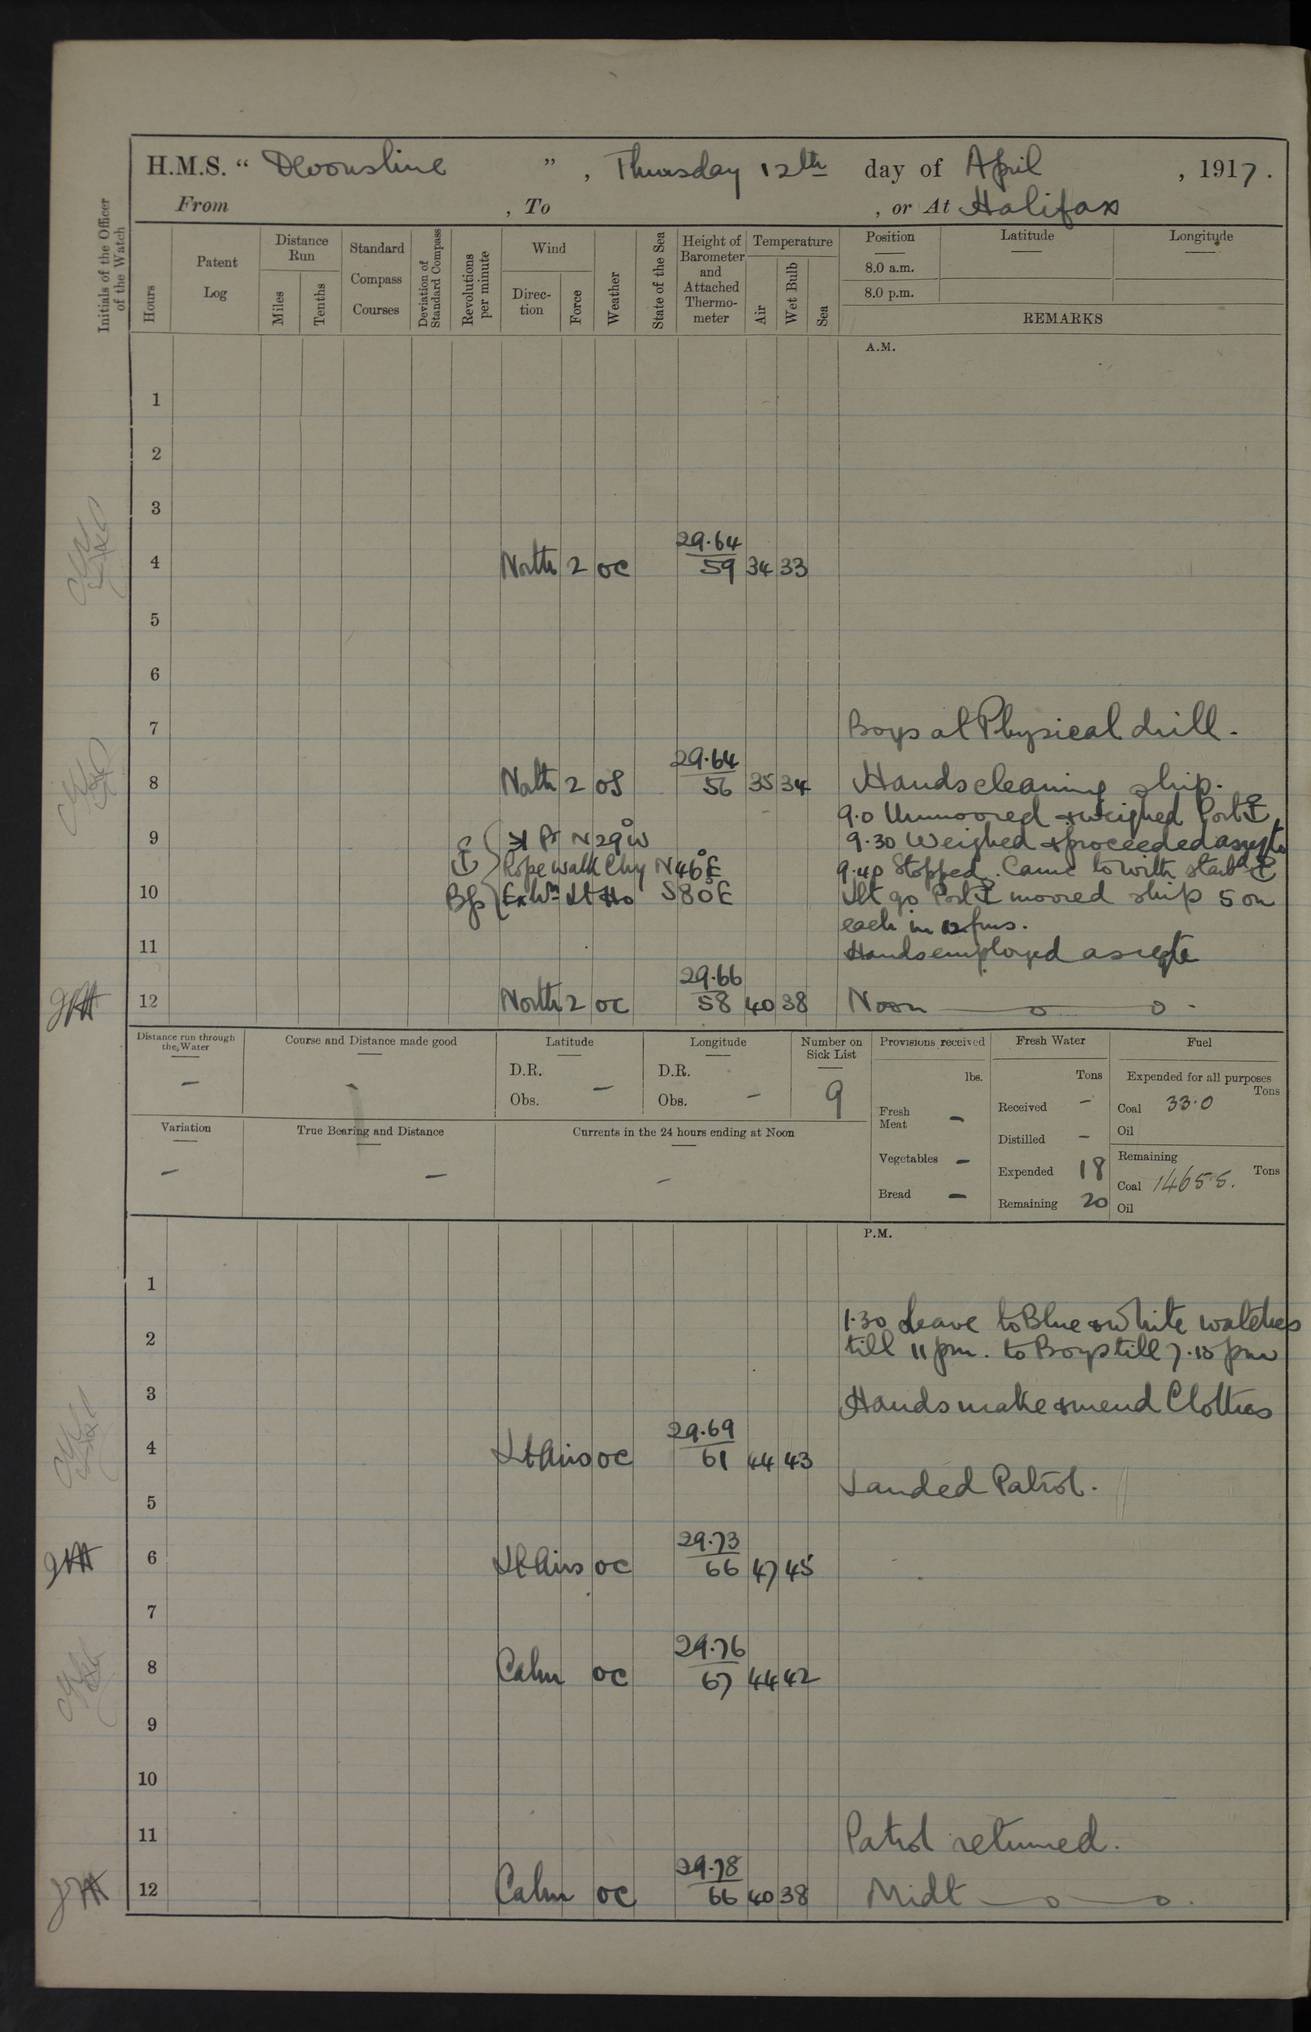 H.M.S. “ Devonshire ” , Thursday 12th day of April , 1917.
From , To , or At Halifax
Initials of the Officer of the Watch
Hours
Patent Log
Distance Run
Miles
Tenths
Standard Compass Courses
Deviation of Standard Compass
Revolutions per minute
Wind
Direc-tion
Force
Weather
State of the Sea
Height of Barometer and Attached Thermo-meter
Temperature
Air
Wet Bulb
Sea
Position Latitude Longitude
8.0 a.m.
8.0 p.m.
REMARKS
A.M.
1
2
3
4 North 2 oc 29.64 59 34 33
5
6
7 Boys at Physical drill.
8 North 2 os 29.64 56 35 34 Hands cleaning ship.
9.0 Unmoored & weighed Port ⚓,
9 Pt N29°W 9.30 Weighed & proceeded as reqte
Rope walk Chy N46°E 9.40 Stopped. Came to with starbd ⚓
10 Bgs Lt Ho S80°E let go Port ⚓ moored ship 5 on
each in 12 fms.
11 Hands employed as reqte
12 North 2 oc 29.66 58 40 38 Noon
Distance run through the Water
–
Course and Distance made good
-
Latitude
D.R.
Obs. –
Longitude
D.R.
Obs. –
Number on Sick List
9
Provisions received
lbs.
Fresh Meat –
Vegetables –
Bread –
Fresh Water
Tons
Received –
Distilled –
Expended 18
Remaining 20
Fuel
Expended for all purposes
Tons
Coal 33.0
Oil
Remaining
Tons
Coal 1465.5.
Oil
Variation
–
True Bearing and Distance
–
Currents in the 24 hours ending at Noon
–
P.M.
1
1.30 Leave to Blue & White watches
2 till 11 pm. to Boys till 7.15 pm
3 Hands make & mend Clothes
4 Lt Airs oc 29.69 61 44 43
Landed Patrol.
5
6 Lt Airs oc 29.73 66 47 45
7
8 Calm oc 29.76 67 44 42
9
10
11 Patrol returned.
12 Calm oc 29.78 66 40 38 Midt